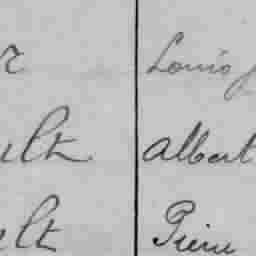 r Louis J
ult Albert
elt Pierre